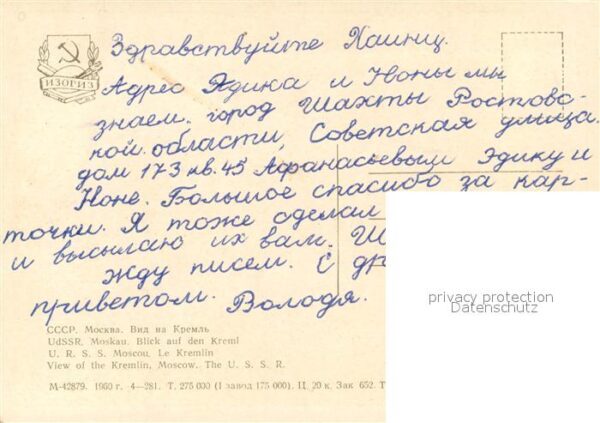 Здравствуйте Хаинц.
ИЗОГИЗ
Адрес Эдика и Ноны мы
знаем. город Шахты Ростовс-
кой области, Советская улица.
дом 173 кв. 45 Афанасьевыш Эдику и
Ноне. Большое спасибо за кар-
точки. Я тоже сделал
и высылаю их вам.
Жду писем. С
приветом. Володя.
privacy protection
Datenschutz
СССР. Москва. Вид на Кремль
UdSSR. Moskau. Blick auf den Kreml
U. R. S. S. Moscou. Le Kremlin
View of the Kremlin, Moscow. The U. S. S. R.
М-42879. 1960 г. 4—281. Т. 275 000 (1 завод 175 000). Ц. 20 к. Зак 652.